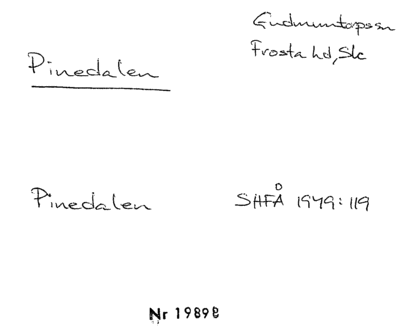 Gudmuntorps sn
Frosta hd, Skc
Pinedalen
Pinedalen SHFÅ 1949:119
Nr 19898